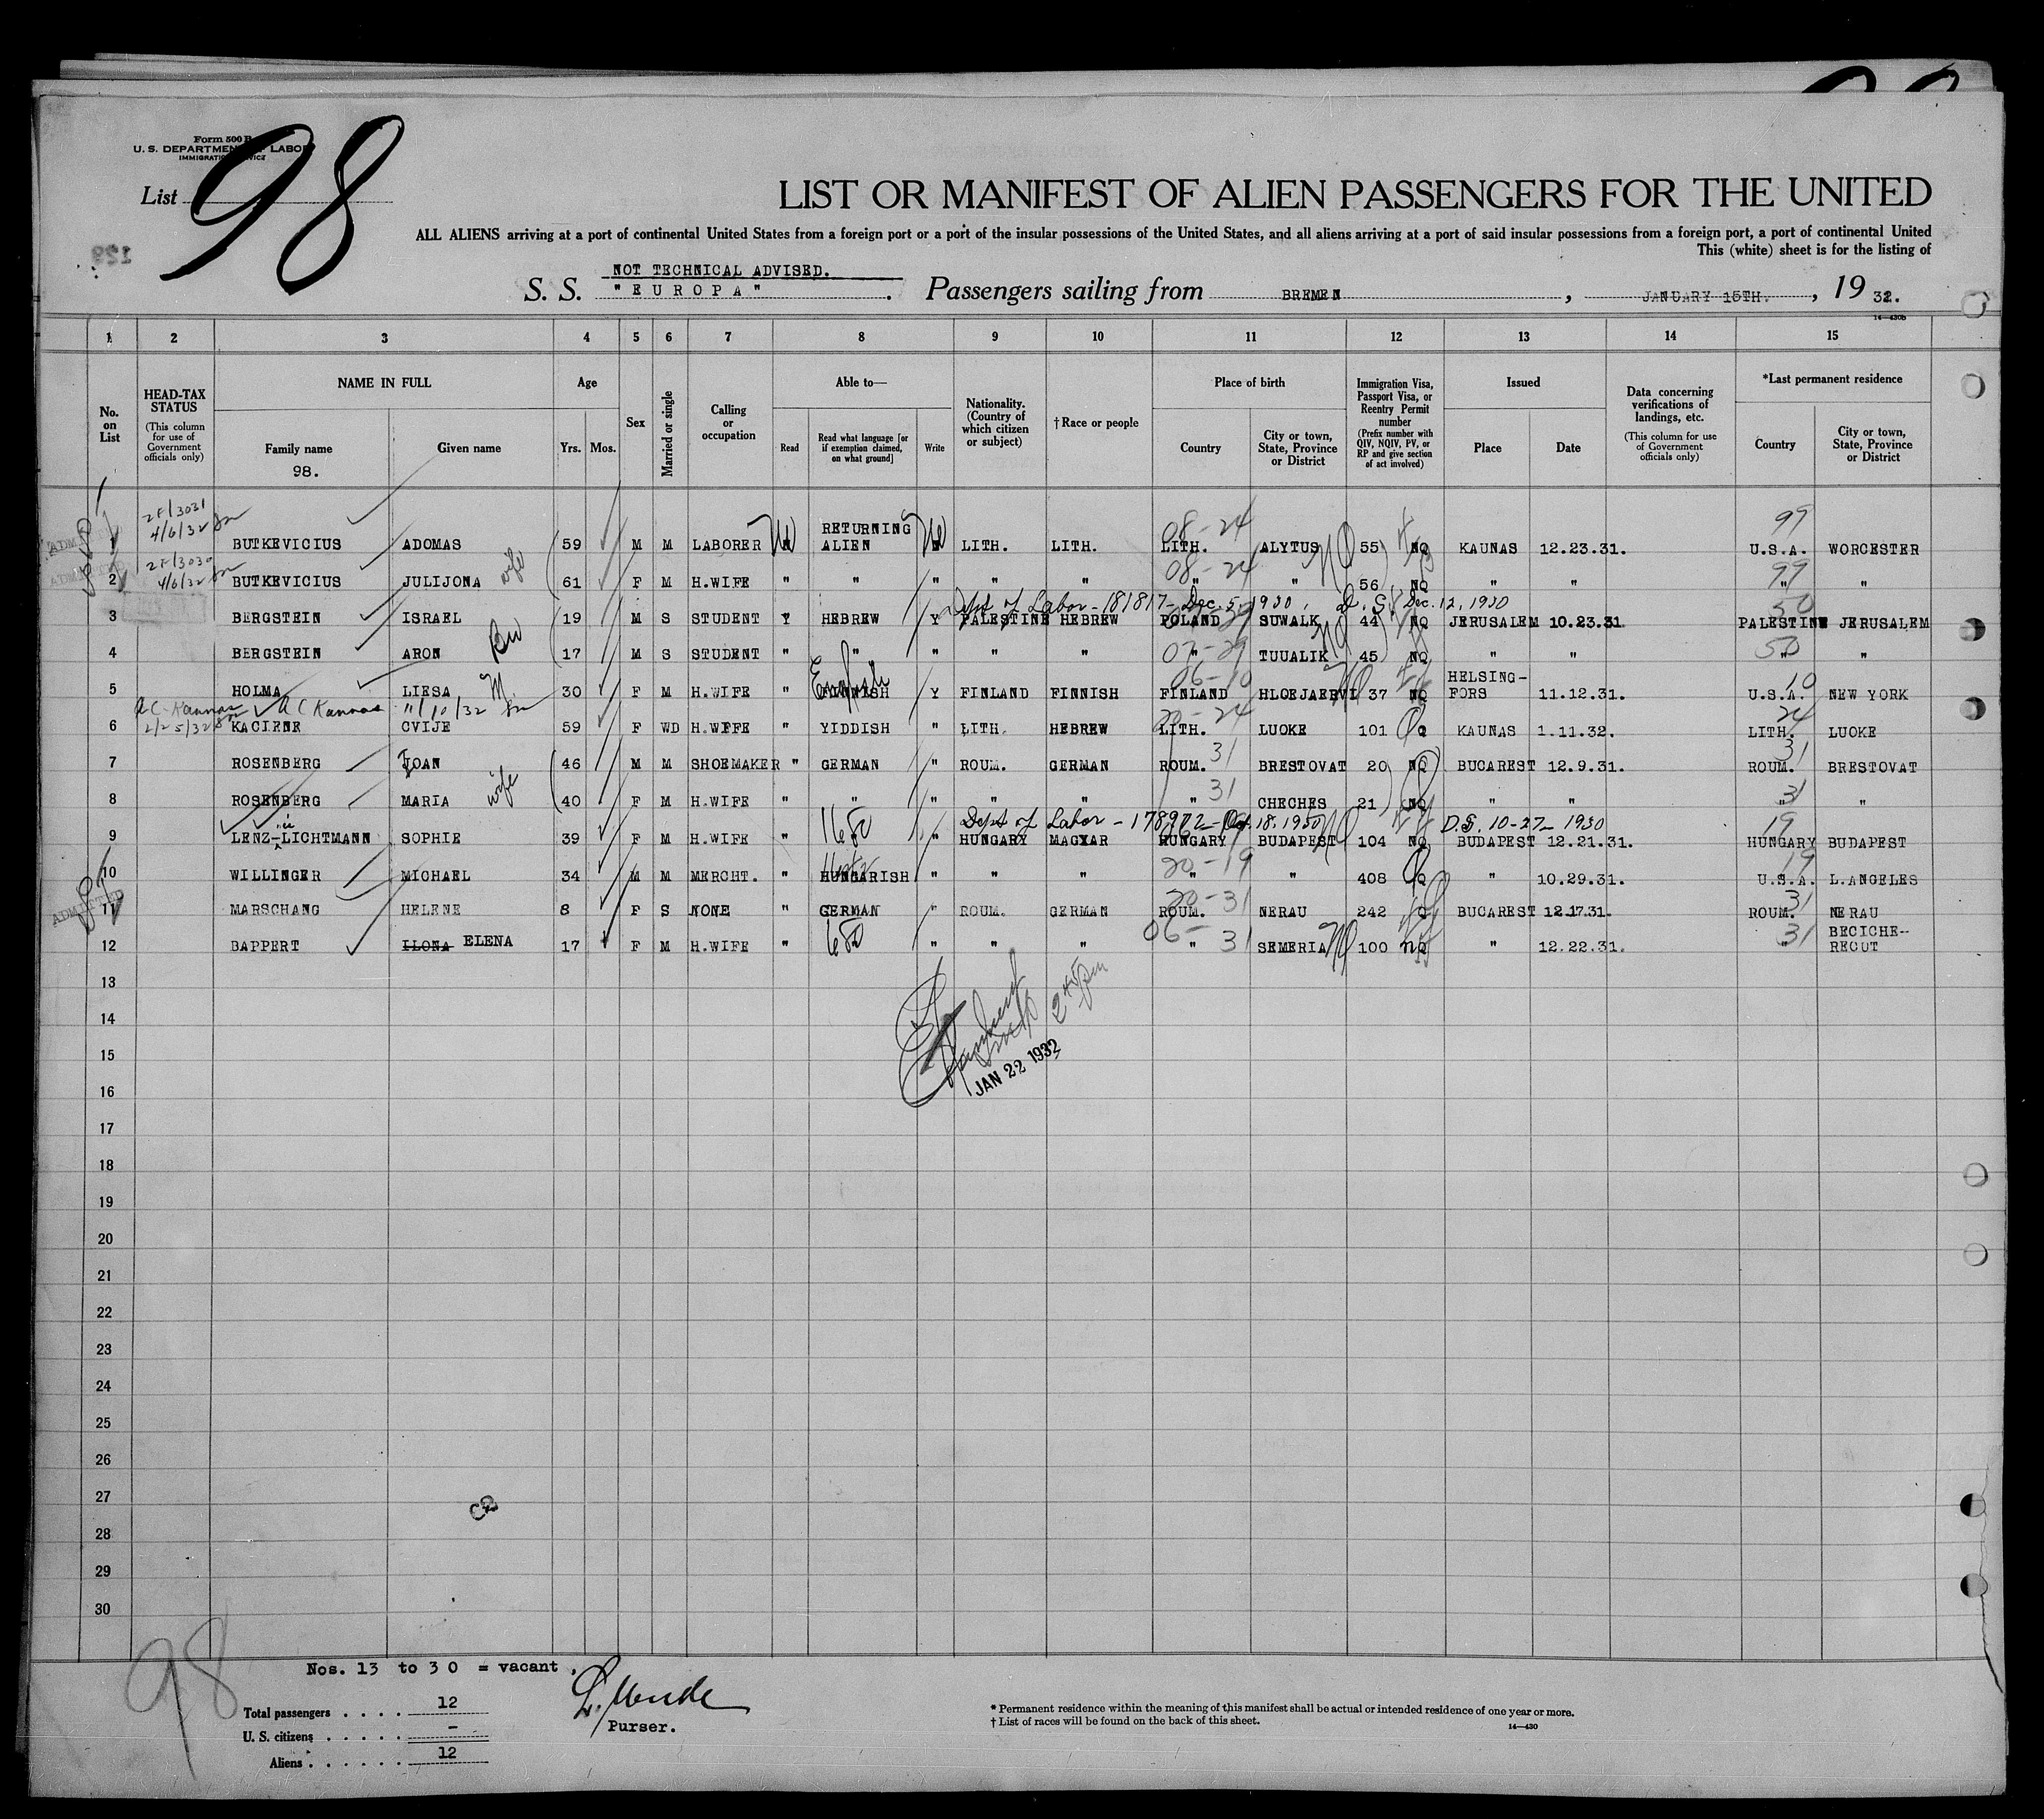 Form 500 B
U. S. DEPARTMENT OF LABOR
IMMIGRATION SERVICE
List 98
LIST OR MANIFEST OF ALIEN PASSENGERS FOR THE UNITED
ALL ALIENS arriving at a port of continental United States from a foreign port or a port of the insular possessions of the United States, and all aliens arriving at a port of said insular possessions from a foreign port, a port of continental United
This (white) sheet is for the listing of
NOT TECHNICAL ADVISED.
S. S. "EUROPA". Passengers sailing from BREMEN, JANUARY 15TH., 1932.
14—430b
1 2 3 4 5 6 7 8 9 10 11 12 13 14 15
No. on List
HEAD-TAX STATUS
(This column for use of Government officials only)
NAME IN FULL
Family name
98.
Given name
Age
Yrs. Mos.
Sex
Married or single
Calling or occupation
Able to—
Read
Read what language [or if exemption claimed, on what ground]
Write
Nationality. (Country of which citizen or subject)
† Race or people
Place of birth
Country
City or town, State, Province or District
Immigration Visa, Passport Visa, or Reentry Permit number
(Prefix number with QIV, NQIV, PV, or RP and give section of act involved)
Issued
Place
Date
Data concerning verifications of landings, etc.
(This column for use of Government officials only)
*Last permanent residence
Country
City or town, State, Province or District
2F/3031 08-24 99
4/6/32
1 BUTKEVICIUS ADOMAS 59 M M LABORER RETURNING ALIEN LITH. LITH. LITH. ALYTUS 55 NQ KAUNAS 12.23.31. U.S.A. WORCESTER
2F/3030 wife 08-24 99
4/6/32
2 BUTKEVICIUS JULIJONA 61 F M H.WIFE " " " " " " " 56 NQ " " " "
Dept of Labor - 181817 - Dec. 5, 1930, D. S. Dec. 12, 1930 50
3 BERGSTEIN ISRAEL 19 M S STUDENT Y HEBREW Y PALESTINE HEBREW POLAND SUWALK 44 NQ JERUSALEM 10.23.31 PALESTINE JERUSALEM
50
4 BERGSTEIN ARON 17 M S STUDENT " " " " " " TUUALIK 45 NQ " " " "
English 06-10 10
5 HOLMA LIESA 30 F M H.WIFE " FINNISH Y FINLAND FINNISH FINLAND HLOEJAERVI 37 NQ HELSING-FORS 11.12.31. U.S.A. NEW YORK
24
2/25/32
6 KACIENE CVIJE 59 F WD H.WIFE " YIDDISH " LITH. HEBREW LITH. LUOKE 101 Q KAUNAS 1.11.32. LITH. LUOKE
31 31
7 ROSENBERG JOAN 46 M M SHOEMAKER " GERMAN " ROUM. GERMAN ROUM. BRESTOVAT 20 NQ BUCAREST 12.9.31. ROUM. BRESTOVAT
wife 31 31
8 ROSENBERG MARIA 40 F M H.WIFE " " " " " " CHECHES 21 NQ " " " "
Dept of Labor - 178972 - Oct. 18. 1930 D.S. 10-27-1930 19
9 LENZ-LICHTMANN SOPHIE 39 F M H.WIFE " " " HUNGARY MAGYAR HUNGARY BUDAPEST 104 NQ BUDAPEST 12.21.31. HUNGARY BUDAPEST
20-19 19
10 WILLINGER MICHAEL 34 M M MERCHT. " HUNGARISH " " " " " 408 Q " 10.29.31. U.S.A. L.ANGELES
20-31 31
11 MARSCHANG HELENE 8 F S NONE " GERMAN " ROUM. GERMAN ROUM. NERAU 242 Q BUCAREST 12.17.31. ROUM. NERAU
06-31 31
12 BAPPERT ILONA ELENA 17 F M H.WIFE " " " " " SEMERIA 100 NQ " 12.22.31. " BECICHE-RECUT
13
14
15
JAN 22 1932
16
17
18
19
20
21
22
23
24
25
26
27
28
29
30
98
Nos. 13 to 30 = vacant,
Total passengers . . . . 12
U. S. citizens . . . . . –
Aliens . . . . . . 12
Purser.
* Permanent residence within the meaning of this manifest shall be actual or intended residence of one year or more.
† List of races will be found on the back of this sheet.
14—430